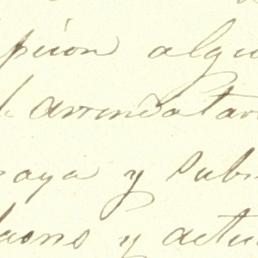 pcion algu
l arrendatar
raya y subs
y actu